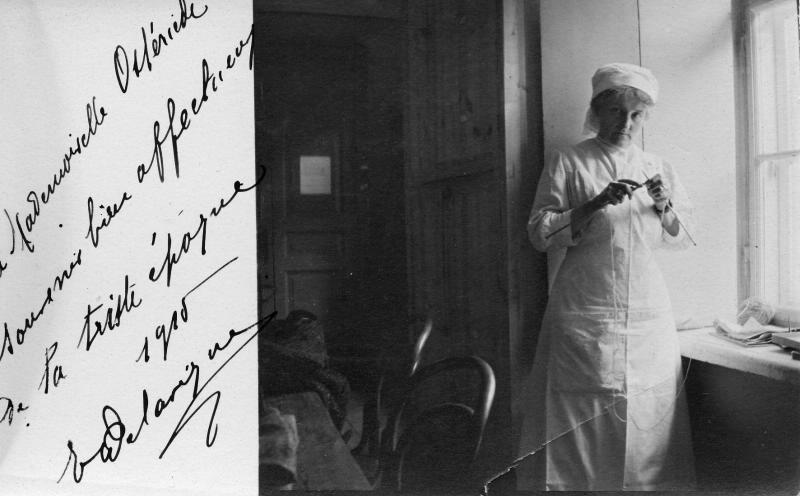 à Mademoiselle Ostériede
souvenir bien affectueux
de la triste époque
1915
Delavigne